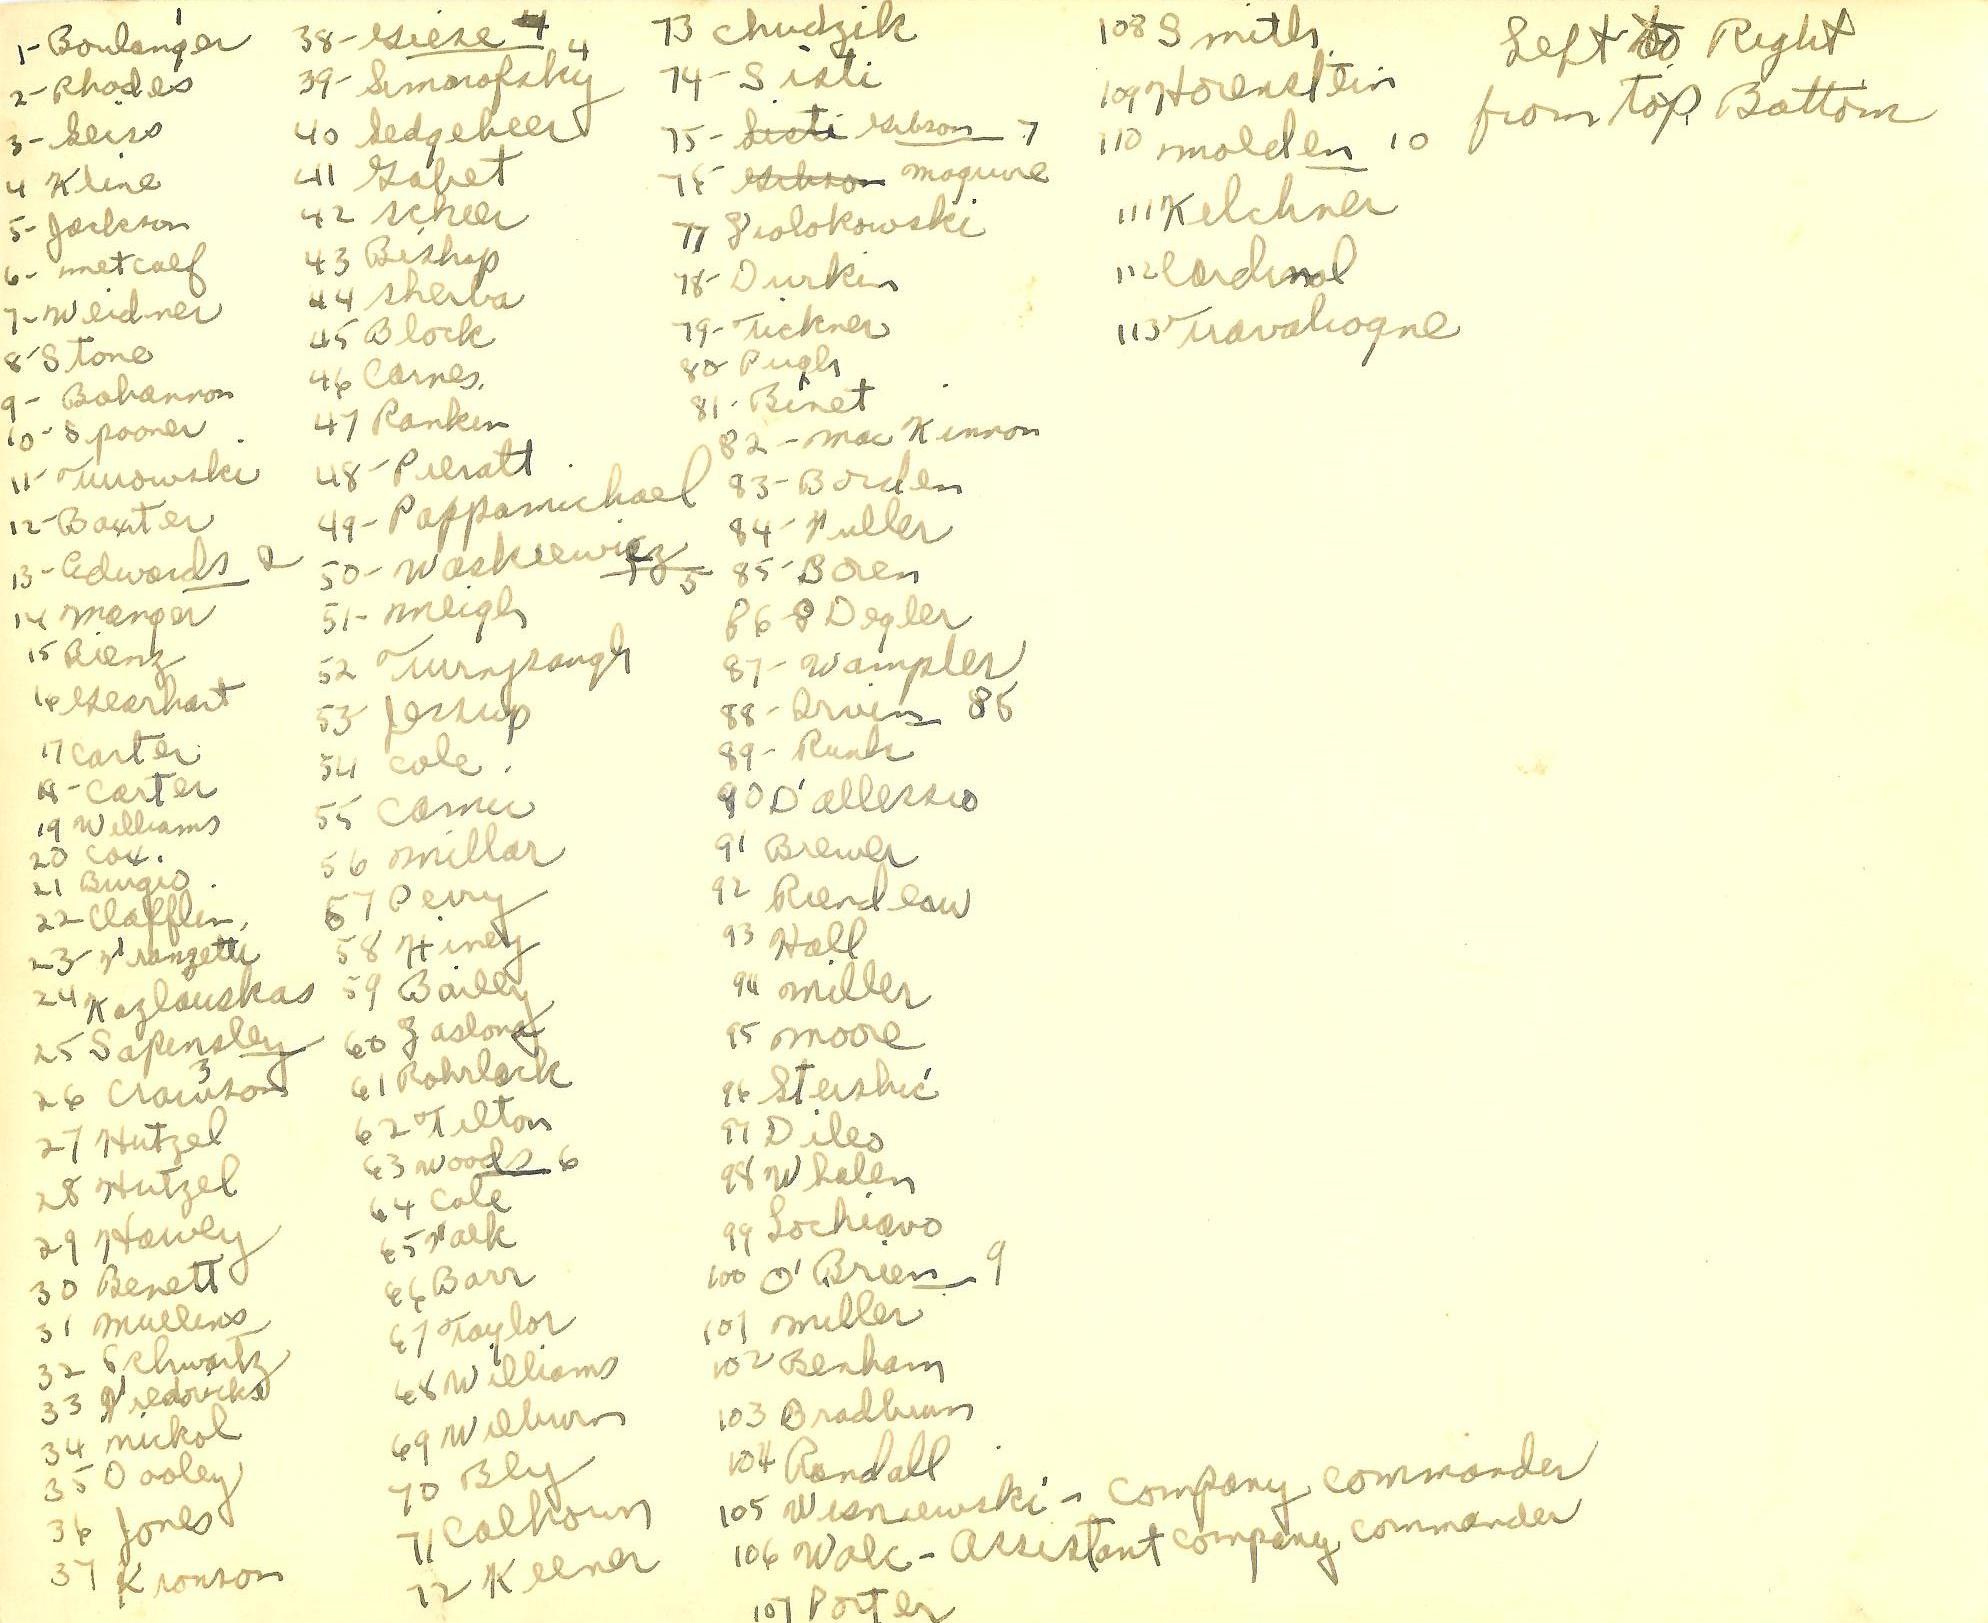 1- Boulanger
2- Rhodes
3- Seiss
4 Kline
5- Jackson
6- Metcalf
7- Weidner
8- Stone
9- Bohannon
10- Spooner
11- Turowski
12- Baxter
13- Edwards 2
14 Manger
15 Rienz
16 Gearhart
17 Carter
18- Carter
19 Williams
20 Cox.
21 Burgio.
22- Clafflin.
23- Franzetti
24 Kazlauskas
25 Sapensley
3
26 Crawson
27 Hutzel
28 Hutzel
29 Hawley
30 Benett
31 Mullins
32 Schwartz
33 Fredericks
34 Nickol
35 Dooley
36 Jones
37 Kronson
38- Giese 4 4
39- Simorofsky
40 Sedgebeer
41 Gabet
42 Scheer
43 Bishop
44 Sherba
45 Block
46 Carnes.
47 Rankin
48- Pieratt
49- Pappamichael
50- Waskiewicz
5
51- Meigh
52 Turnbaugh
53 Jessup
54 Cole.
55
56 Millar
57 Perry
58 Hiney
59 Bailey
60 Zaslona
61 Rohrlack
62 Tilton
63 Woods 6
64 Cole
65 Falk
66 Barr
67 Taylor
68 Williams
69 Wilburn
70 Bly
71 Calhoun
72 Keener
73 Chudzik
74- Sisti
75- Sisti Gibson 7
76- Gibson Maguire
77 Siolokowski
78- Durkin
79- Tickner
80- Pugh
81- Binet
82- Mac Kinnon
83- Borden
84- Fuller
85- Boren
86- 8 Degler
87- Wampler
88- Irvin 86
89- Runk
90 D'allessio
91 Brewer
92 Riendeau
93 Hall
94 Miller
95 Moore
96 Stershic
97 Dileo
98 Whalen
99 Lochiavo
100 O'Brien 9
101 Miller
102 Benham
103 Bradburn
104 Randall
105 Wisniewski - Company Commander
106 Walc - Assistant Company Commander
107 Porter
108 Smith
109 Horenstein
110 Molden 10
111 Kelchner
112 Cardinal
113 Travaliogne
Left to Right
from top Bottom